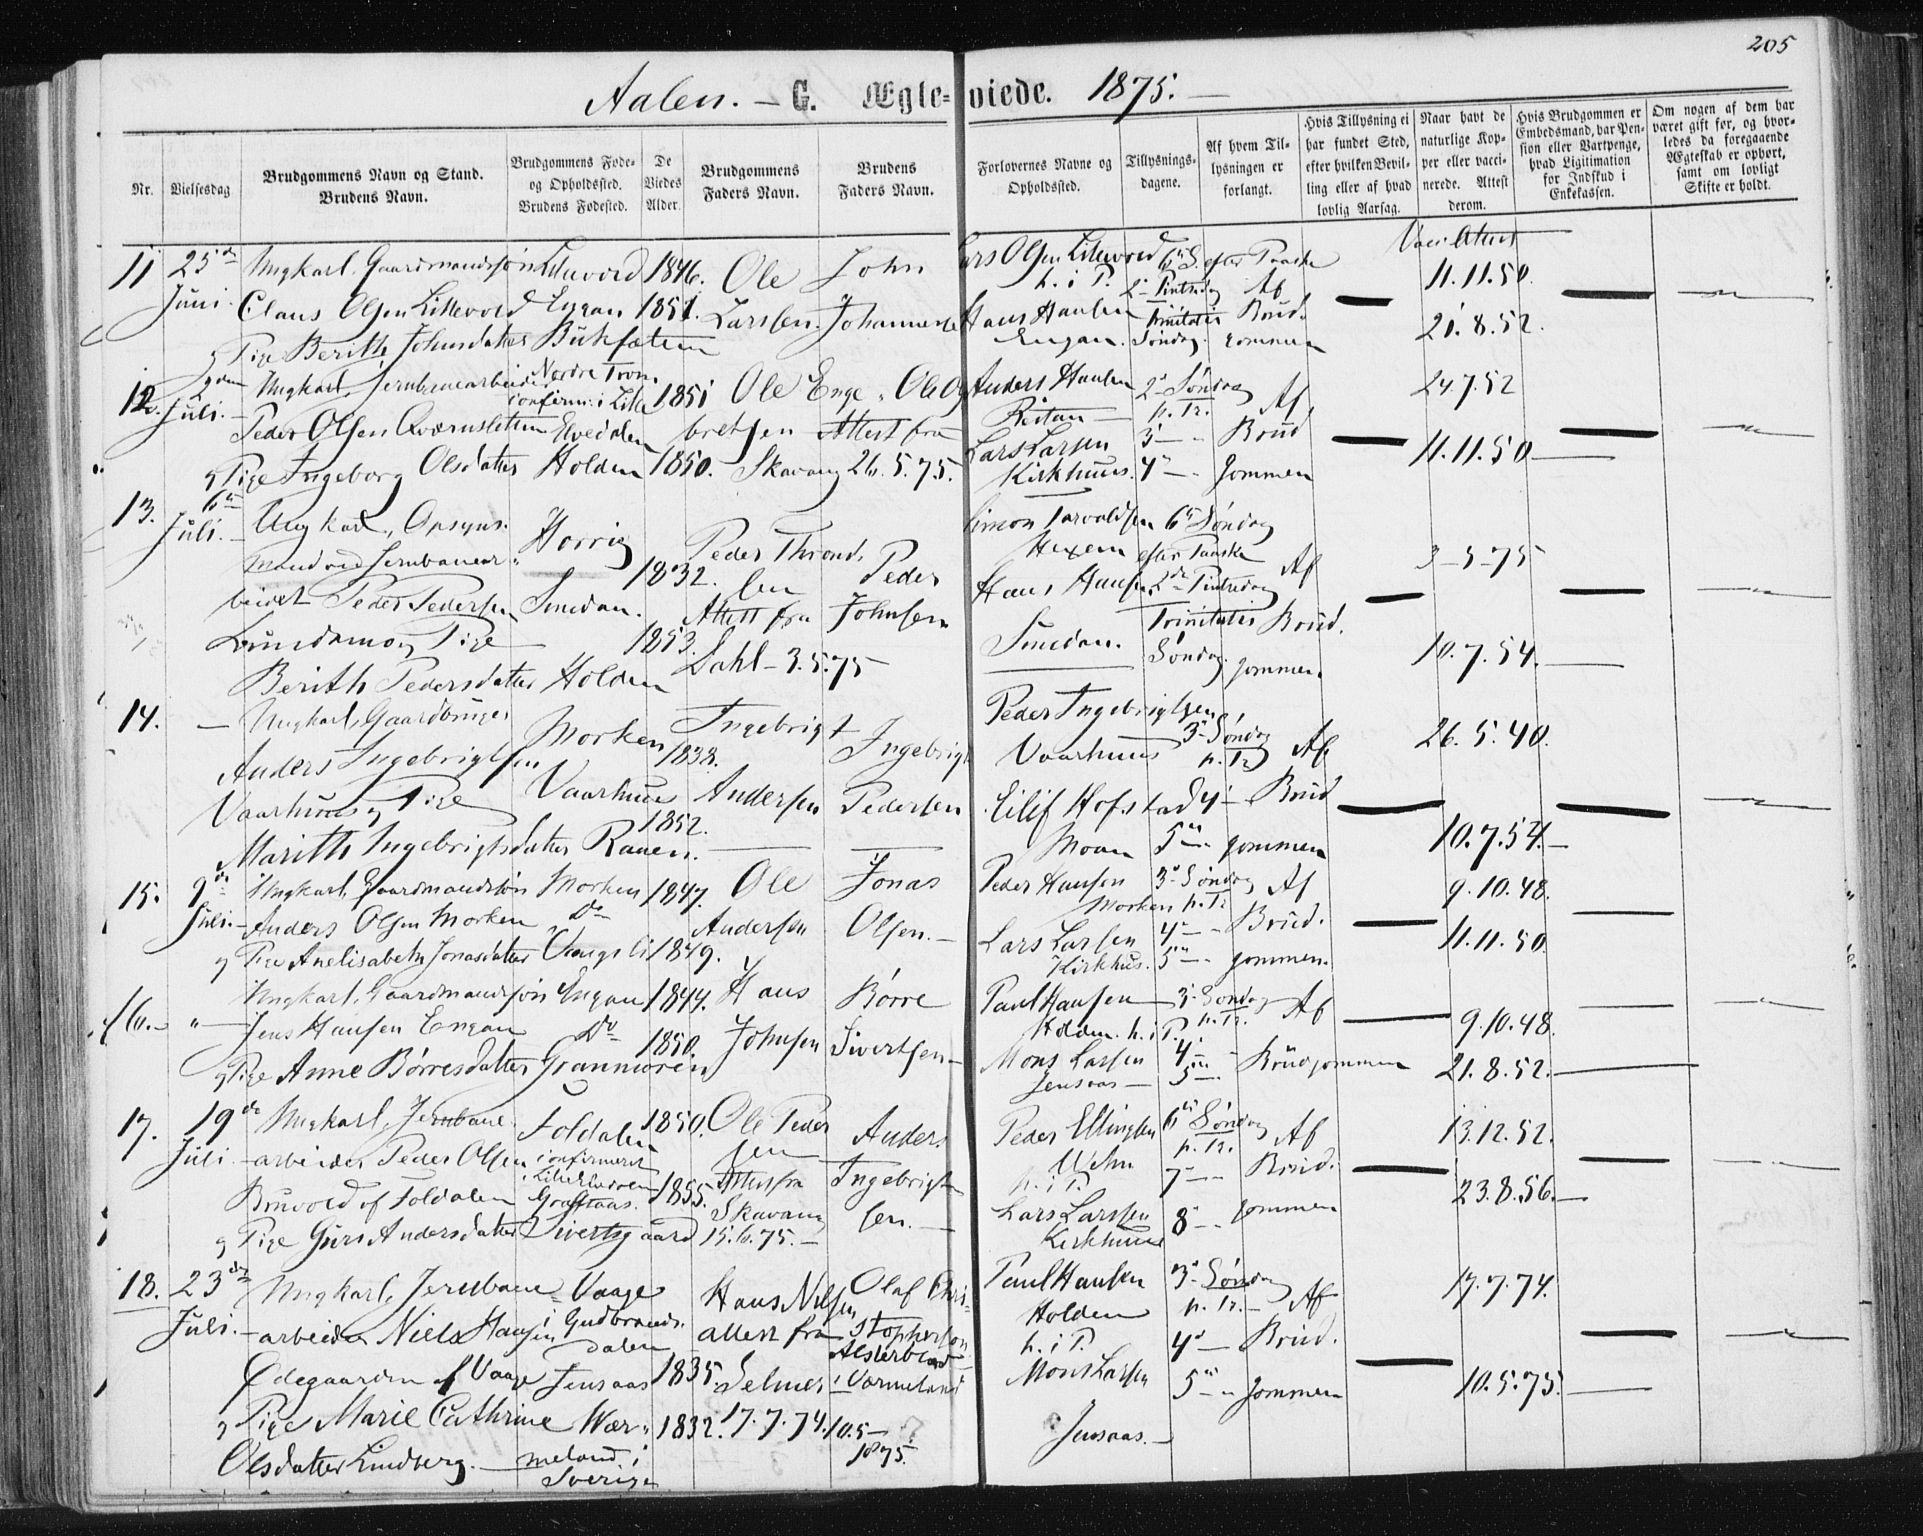 205
Aalen. — G. Ægteviede. 1875. —
Nr.
Vielsesdag
Brudgommens Navn og Stand.
Brudens Navn.
Brudgommens Føde-
og Opholdssted.
Brudens Fødested.
De
Viedes
Alder.
Brudgommens
Faders Navn.
Brudens
Faders Navn.
Forlovernes Navne og
Opholdssted.
Tillysnings-
dagene.
Af hvem Til-
lysningen er
forlangt.
Hvis Tillysning ei
har fundet Sted,
efter hvilken Bevil-
ling eller af hvad
lovlig Aarsag.
Naar havt de
naturlige Kop-
per eller vacci-
nerede. Attest
derom.
Hvis Brudgommen er
Embedsmand, har Pen-
sion eller Vartpenge,
hvad Ligitimation
for Indskud i
Enkekassen.
Om nogen af dem har
været gift før, og hvor-
ledes da foregaaende
Ægteskab er ophørt,
samt om lovligt
Skifte er holdt.
11
25de
Juni.
Ungkarl, Gaardmandssøn
Claus Olsen Litlevold
g Pige Berith Johnsdatter
Litlevold
Engan
Bukfætem
1846.
1851.
Ole
Larssen.
John
Johannese
Lars Olsen Litlevold
h. i P.
Hans Hansen
Engan.
6te S. efter Paaske
2. Pintsedag
Trinitatis
Søndag.
Af
Brud.
gommen
Vacc. Attest
11.11.50.
21.8.52.
12.
2den
Juli.
Ungkarl, Jernbanearbeider
Peder Olsen Qværnsletten
g Pige Ingeborg Olsdatter
Nordre Tron.
confirm. i Lille
Elvedalen
Holden
1851
1850.
Ole Enge
bretsen
Ole
Attest fra
Skavang 26.5.75.
Anders Hansen
Reitan
Lars Larsen
Kirkhuus.
2den Søndag
p. Tr.
3 — "
4 — "
Af
Brud
gommen
24.7.52
11.11.50
13.
6te
Juli.
Ungkarl, Opsyns.
mand ved Jernbanear
beidet Peder Pedersen
Lundamo g Pige
Berith Pedersdatter
Horrig
Smedan.
Holden
1832.
1853.
Peder Thrond.
sen
Attest fra
Dahl - 3.5.75
Peder
Johnsen
Simon Tarvaldsen
Hexem
Hans Hansen
Smedan.
6te Søndag
efter Paaske
2de Pintsedag
Trinitatis
Søndag.
Af
Brud.
gommen
3-5-75
10.7.54.
14.
—
Ungkarl, Gaardbruger
Anders Ingebrigtsen
Vaarhuus g Pige
Marith Ingebrigtsdatter
Morken
Vaarhuus
Raaen.
1838.
1852.
Ingebrigt
Andersen
Ingebrigt
Pedersen
Peder Ingebrigtsen
Vaarhuus
Eilif Hofstad
Moan
3. Søndag
p. Tr
4 —
5 —
Af
Brud
gommen
26.5.40.
10.7.54.
15.
9de
Juli.
Ungkarl, Gaardmandssøn
Anders Olsen Morken
g Pige Anelisabeth Jonasdatter
Morken
Do
Vangsli
1847.
1849.
Ole
Andersen
Jonas
Olsen.
Peder Hansen
Morken
Lars Larsen
Kirkhus.
3. Søndag
p. Tr
4 —
5 —
Af
Brud.
gommen.
9.10.48.
11.11.50.
16.
"
Ungkarl, Gaardmandssøn
Jens Hansen Engan
g Pige Anne Børresdatter
Engan
Do
Granmoren
1844.
1850.
Hans
Johnsen
Børre
Sivertsen
Paul Hansen
Holden h. i P.
Mons Larsen
Jensaas
3. Søndag
p. Tr.
4 —
5 —
Af
Brudgommen
9.10.48.
21.8.52.
17.
19de
Juli.
Ungkarl, Jernbane.
arbeider Peder Olsen
Bruvold af Foldalen
g Pige Guri Andersdatter
Foldalen
confirmeret
i Lille Elvedalen
Graftaas.
Sivertsgaard
1850.
1855.
Ole Peder
sen
Attest fra
Skavang
15.6.75.
Anders
Ingebrigt
sen.
Peder Ellingsen
h. i P.
Lars Larssen
Kirkhuus
6te Søndag
p. Tr.
7 —
8 —
Af
Brud.
gommen
13.12.52.
23.8.56.
18.
23de
Juli.
Ungkarl, Jernbane
arbeider Niels Hansen
Ødegaarden af Vaage
g Pige Marie Cathrine
Olsdatter Lindberg.
Vaage
i Gudbrands.
dalen
Jensaas
Wær-
meland i
Sverige
1835.
1832.
Hans Nilsen
attest fra
Selmer
17.7.74.
Olaf Chri-
stopherson
i Værmeland
10.5-
1875.
Paul Hansen
Holden
h. i P.
Mons Larsen
Jensaas.
3. Søndag
p. Tr.
4 —
5 —
Af
Brud.
gommen
17.7.74.
10.5.75.